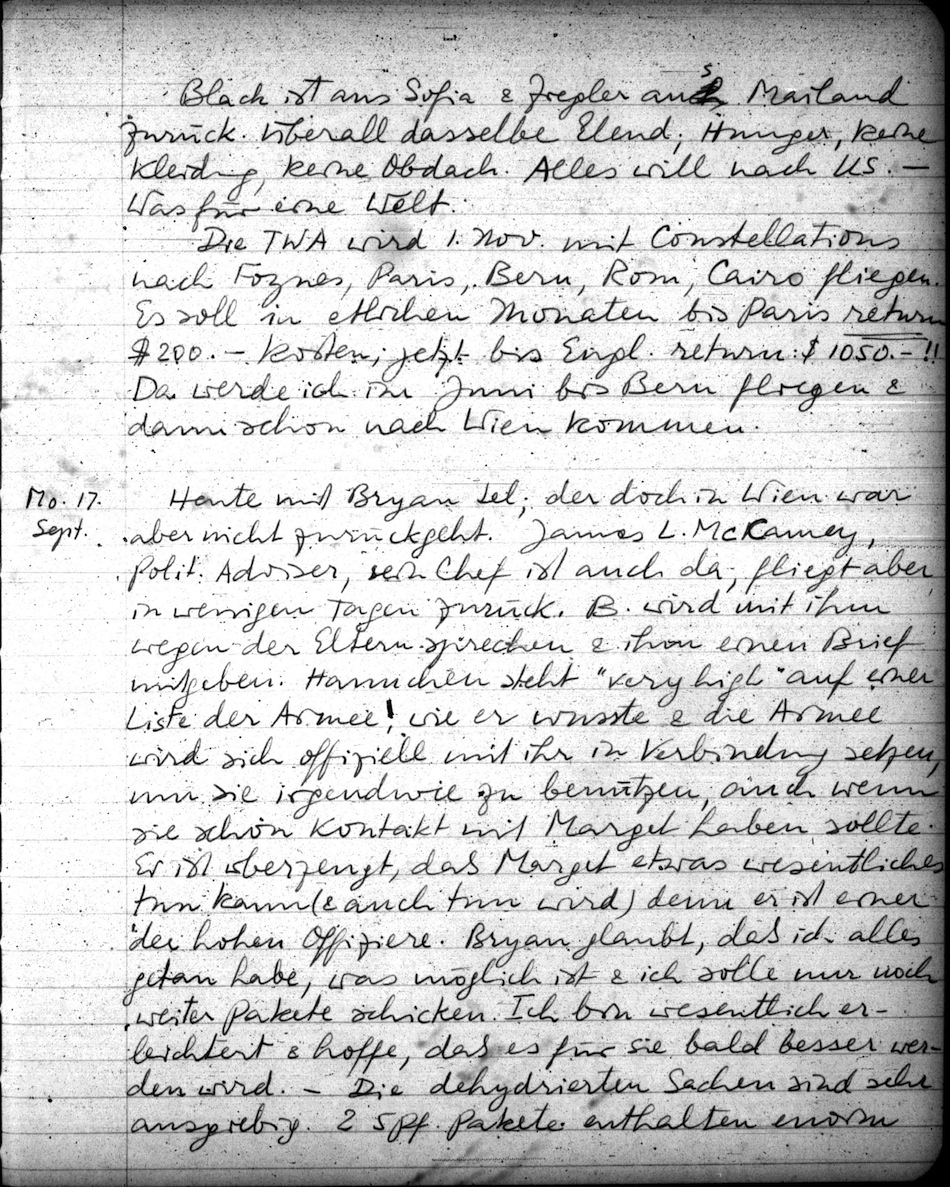 Black ist aus Sofia & Ziegler aus Mailand
zurück. Überall dasselbe Elend, Hunger, keine
Kleidung, keine Obdach. Alles will nach US. –
Was für eine Welt.
Die TWA wird 1. Nov. mit Constellations
nach Foynes, Paris, Bern, Rom, Cairo fliegen.
Es soll in etlichen Monaten bis Paris return
$ 200.– kosten; jetzt bis Engl. return: $ 1050.– !!
Da werde ich im Juni bis Bern fliegen &
dann schon nach Wien kommen.
Mo. 17.
Sept.
Heute mit Bryan tel., der doch in Wien war
aber nicht zurückgeht. James L. McKamey,
Polit. Adviser, sein Chef ist auch da, fliegt aber
in wenigen Tagen zurück. B. wird mit ihm
wegen der Eltern sprechen & ihm einen Brief
mitgeben. Hannchen steht "very high" auf einer
Liste der Armee! wie er wusste & die Armee
wird sich offiziell mit ihr in Verbindung setzen,
um sie irgendwie zu benützen, auch wenn
sie schon Kontakt mit Marget haben sollte.
Er ist überzeugt, das Marget etwas wesentliches
tun kann (& auch tun wird) denn er ist einer
der hohen Offiziere. Bryan glaubt, das ich alles
getan habe, was möglich ist & ich solle nur noch
weiter Pakete schicken. Ich bin wesentlich er-
leichtert & hoffe, das es für sie bald besser wer-
den wird. – Die dehydrierten Sachen sind sehr
ausgiebig. 2 5 Pf. Pakete enthalten enorm